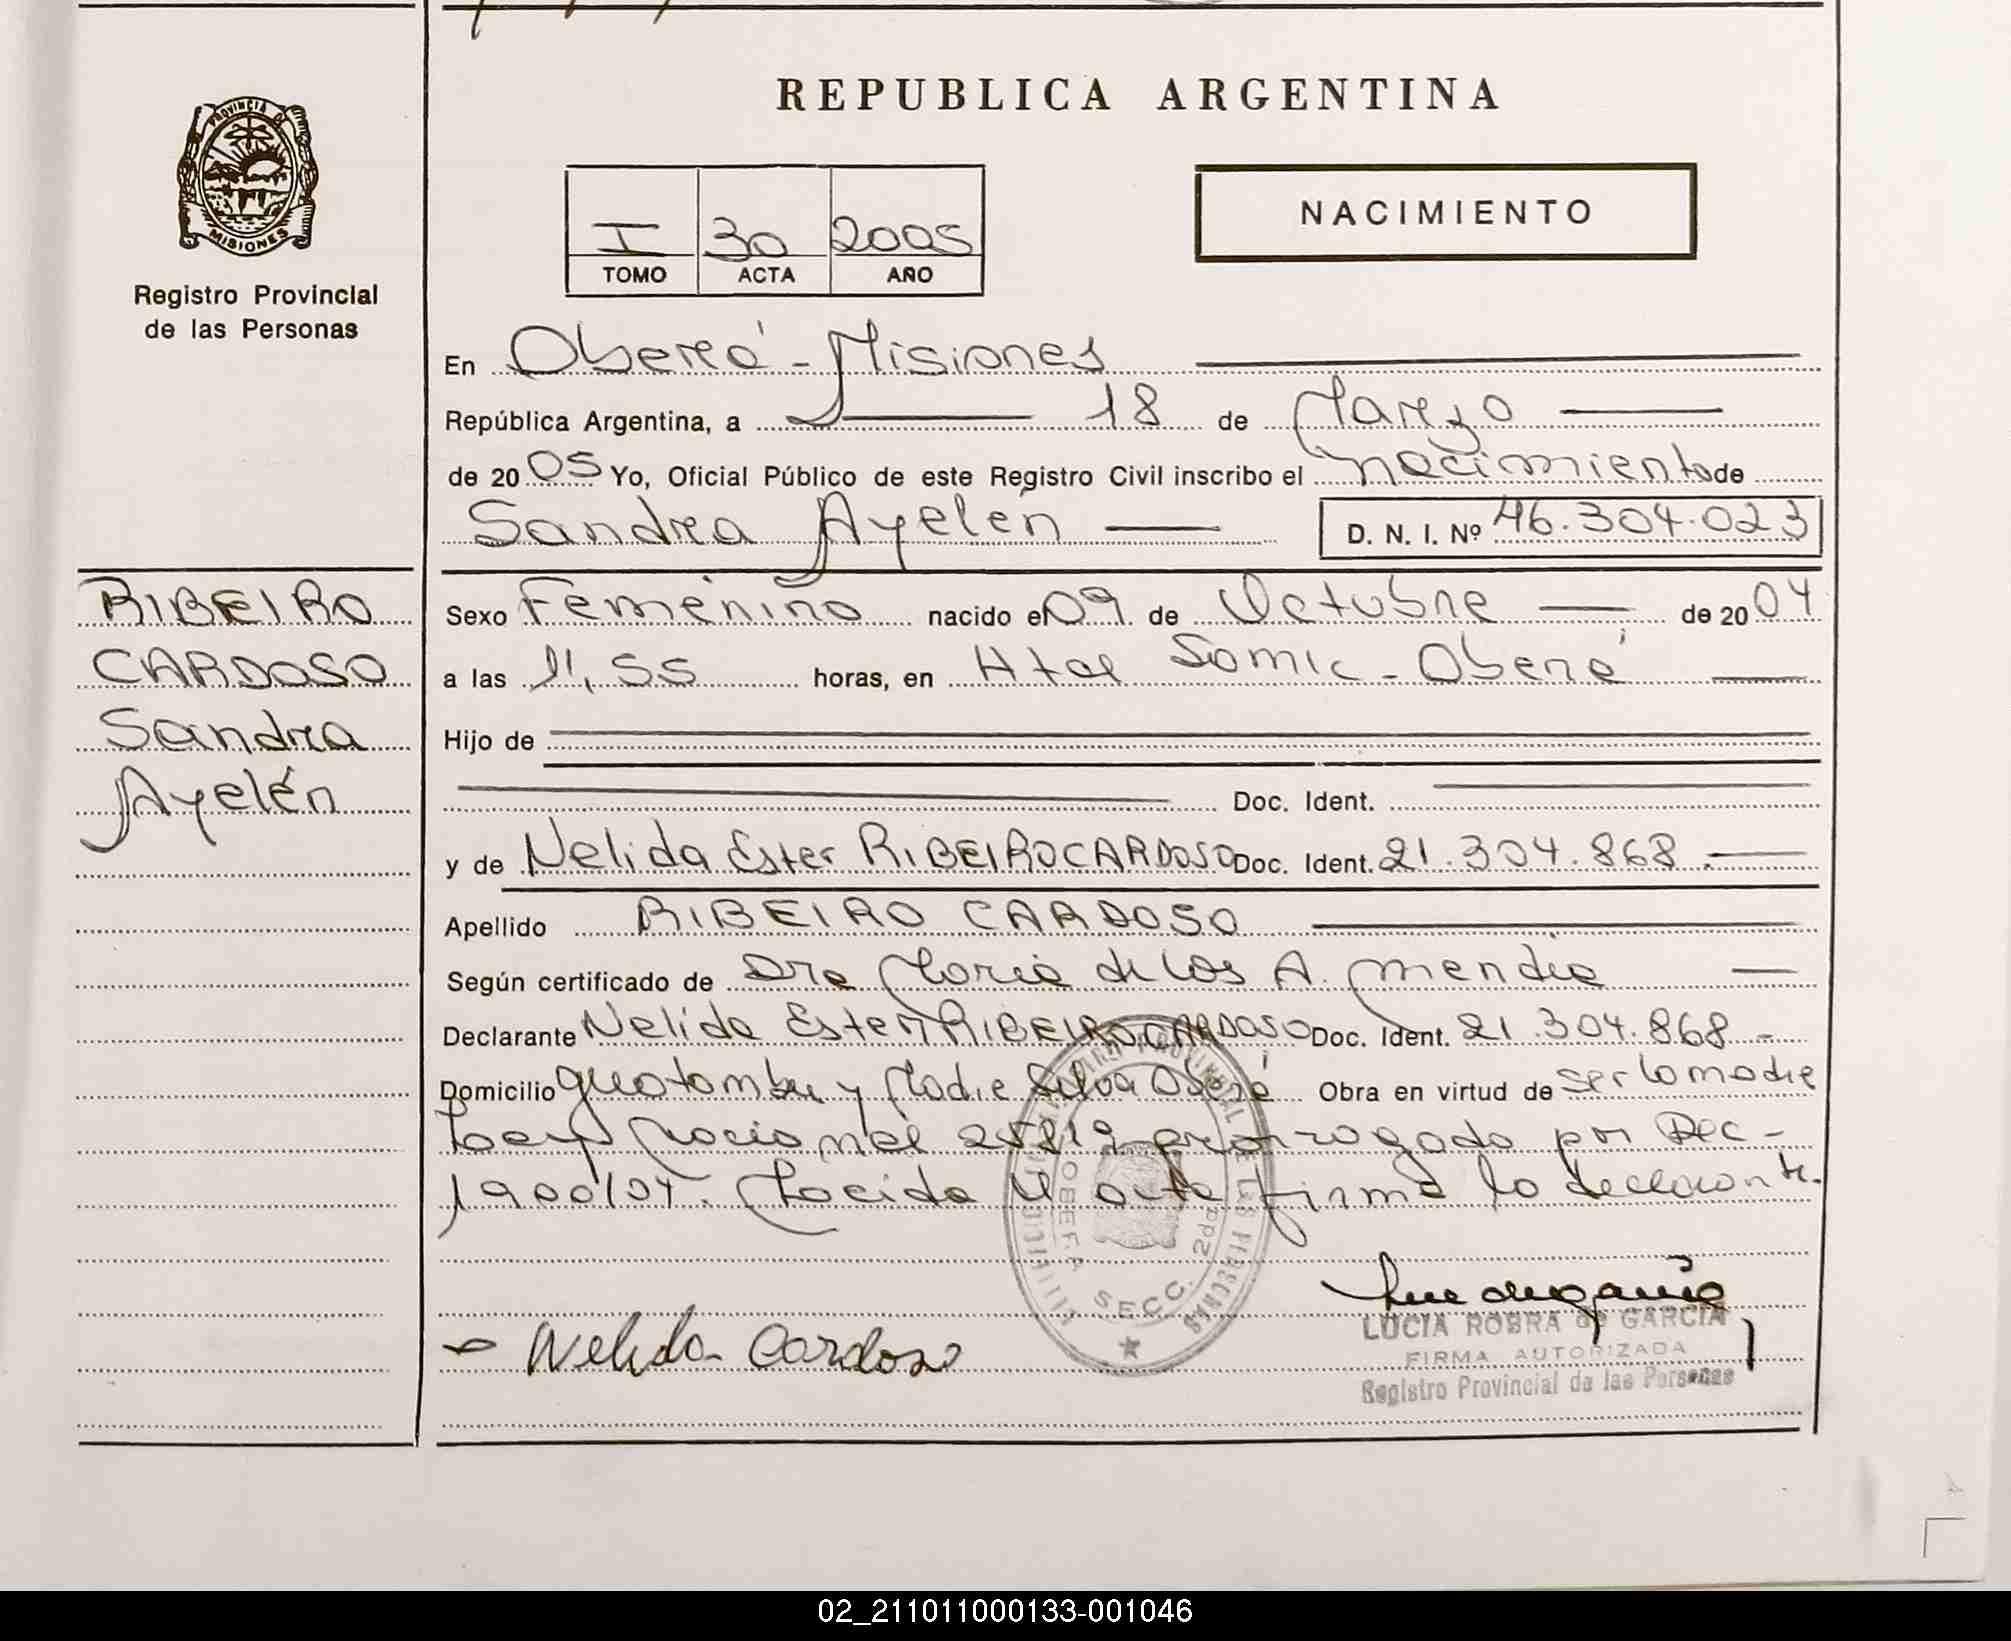 REPUBLICA ARGENTINA
PROVINCIA DE
MISIONES
Registro Provincial
de las Personas
I 30 2005
TOMO ACTA AÑO
NACIMIENTO
En Oberá - Misiones
República Argentina, a 18 de Marzo
de 2005 Yo, Oficial Público de este Registro Civil inscribo el nacimiento de
Sandra Ayelén D. N. I. Nº 46.304.023
RIBEIRO
CARDOSO
Sandra
Ayelén
Sexo Femenino nacido el 09 de Octubre de 2004
a las 11,55 horas, en Htal Samic - Oberá
Hijo de
Doc. Ident.
y de Nelida Ester RIBEIRO CARDOSO Doc. Ident. 21.304.868.
Apellido RIBEIRO CARDOSO
Según certificado de Dra Maria de los A. Mendie
Declarante Nelida Ester RIBEIRO CARDOSO Doc. Ident. 21.304.868.-
Domicilio guatambu y Madre Selva Oberá Obra en virtud de ser la madre
Ley Nacional 25819 prorrogado por Dec-
1900/04. Leída el acta firma la declarante.
REGISTRO PROVINCIAL DE LAS PERSONAS
OBERA SECC. 2da
Nelida Cardoso
LUCIA ROBRA de GARCIA
FIRMA AUTORIZADA
Registro Provincial de las Personas
02_211011000133-001046